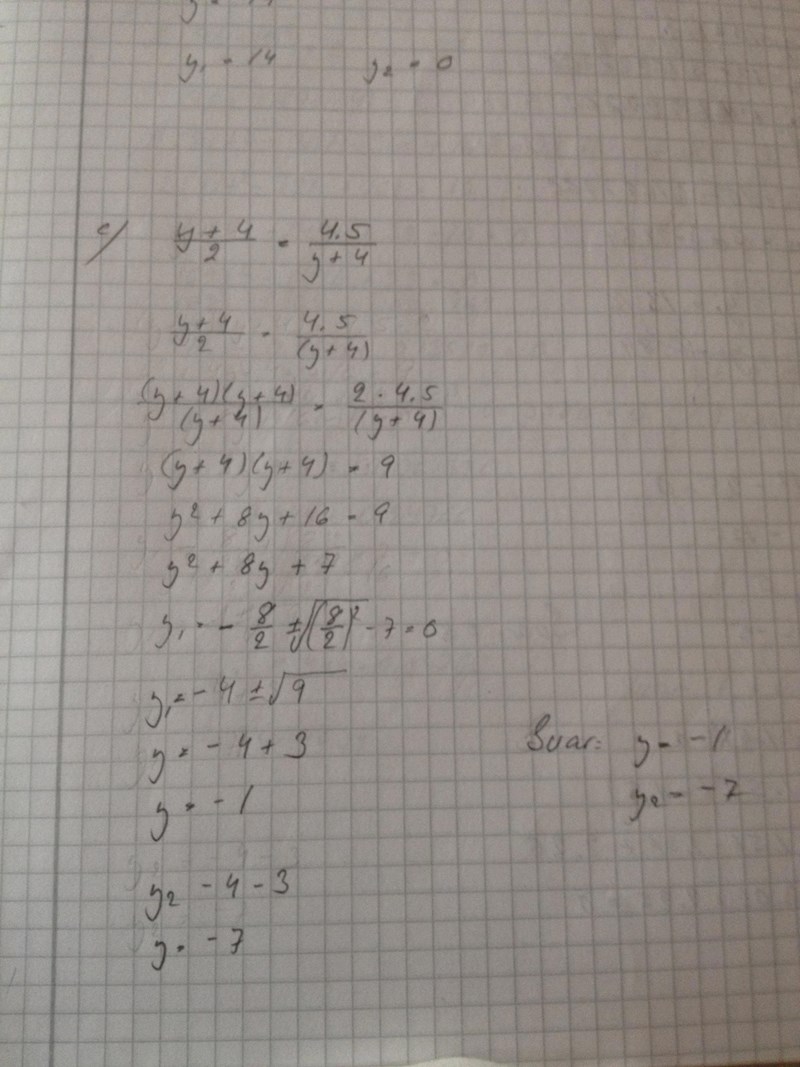 y₁ = 14    y₂ = 0
c) (y + 4)/2 = 4.5/(y + 4)
(y + 4)/2 = 4.5/(y + 4)
(y + 4)(y + 4)/(y + 4) = 2 · 4.5/(y + 4)
(y + 4)(y + 4) = 9
y² + 8y + 16 = 9
y² + 8y + 7
y₁ = - 8/2 ± √(8/2)² - 7 = 0
y₁ = - 4 ± √9
y = - 4 + 3
y = - 1
Svar: y = - 1
y₂ = - 7
y₂ - 4 - 3
y = - 7